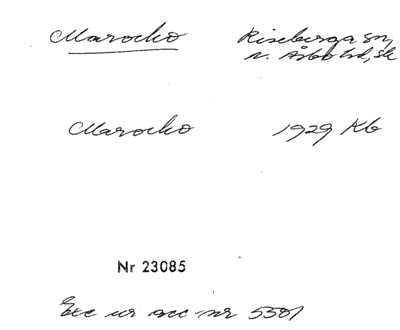 Marocko
Riseberga sn,
N. Åsbo hd, Sk
Marocko
1929 Kb
Nr 23085
Exc ur acc nr 5501